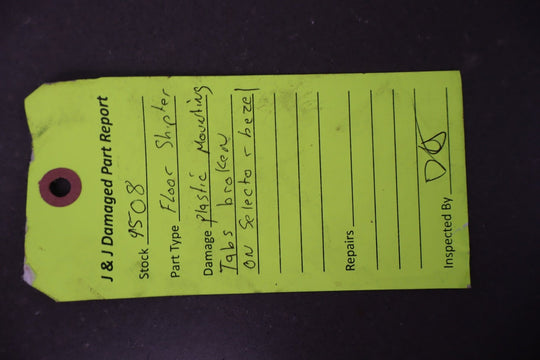 J & J Damaged Part Report
Stock 9508
Part Type Floor Shipter
Damage Plastic Mounting
Tabs broken
ON Selector bezel
Repairs
Inspected By